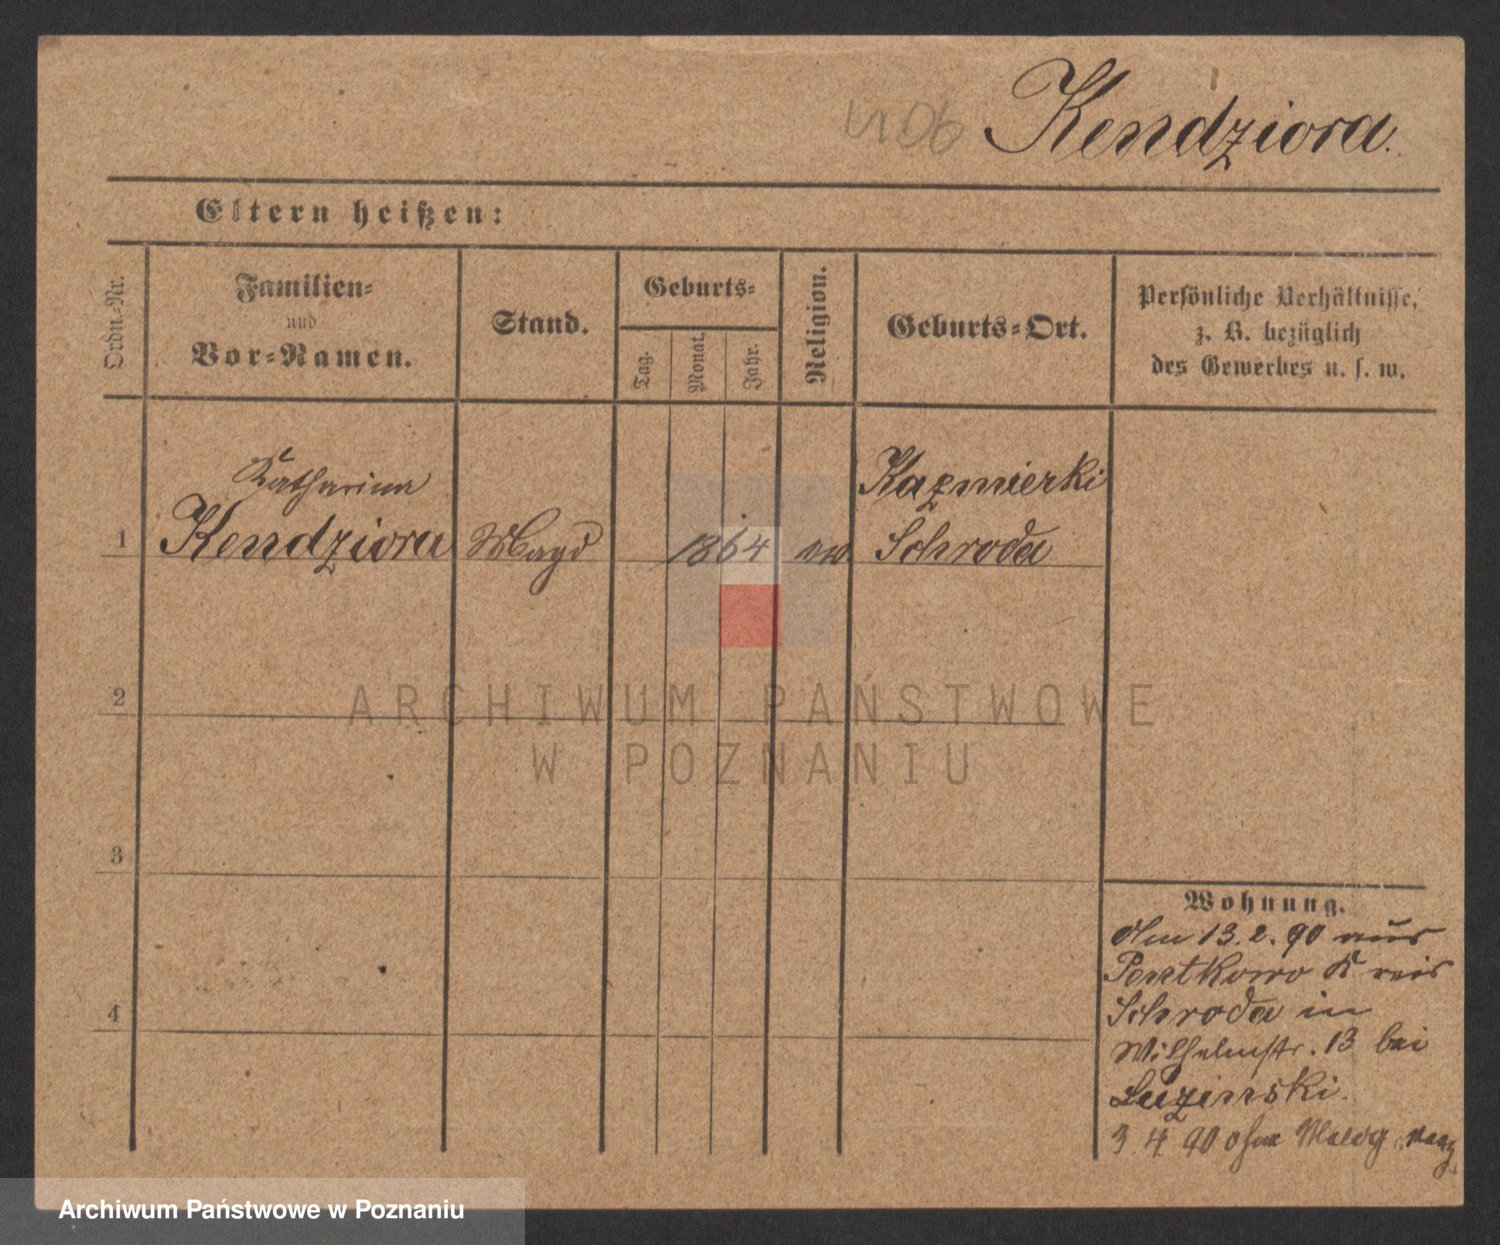 Kendziora.
Eltern heißen:
Ordn.-Nr.
Familien-
und
Vor-Namen.
Stand.
Geburts-
Tag.
Monat.
Jahr.
Religion.
Geburts-Ort.
Persönliche Verhältnisse,
z. B. bezüglich
des Gewerbes u. s. w.
Katharina
Kazmierki
1 Kendziora Magd 1864 Schroda
2
ARCHIWUM PAŃSTWOWE
W POZNANIU
3
Wohnung.
Am 13.2.90 aus
Pentkowo Kreis
4
Schroda in
Wilhelmstr. 13 bei
Luzinski.
3 4 90 ohne Meldg
Archiwum Państwowe w Poznaniu